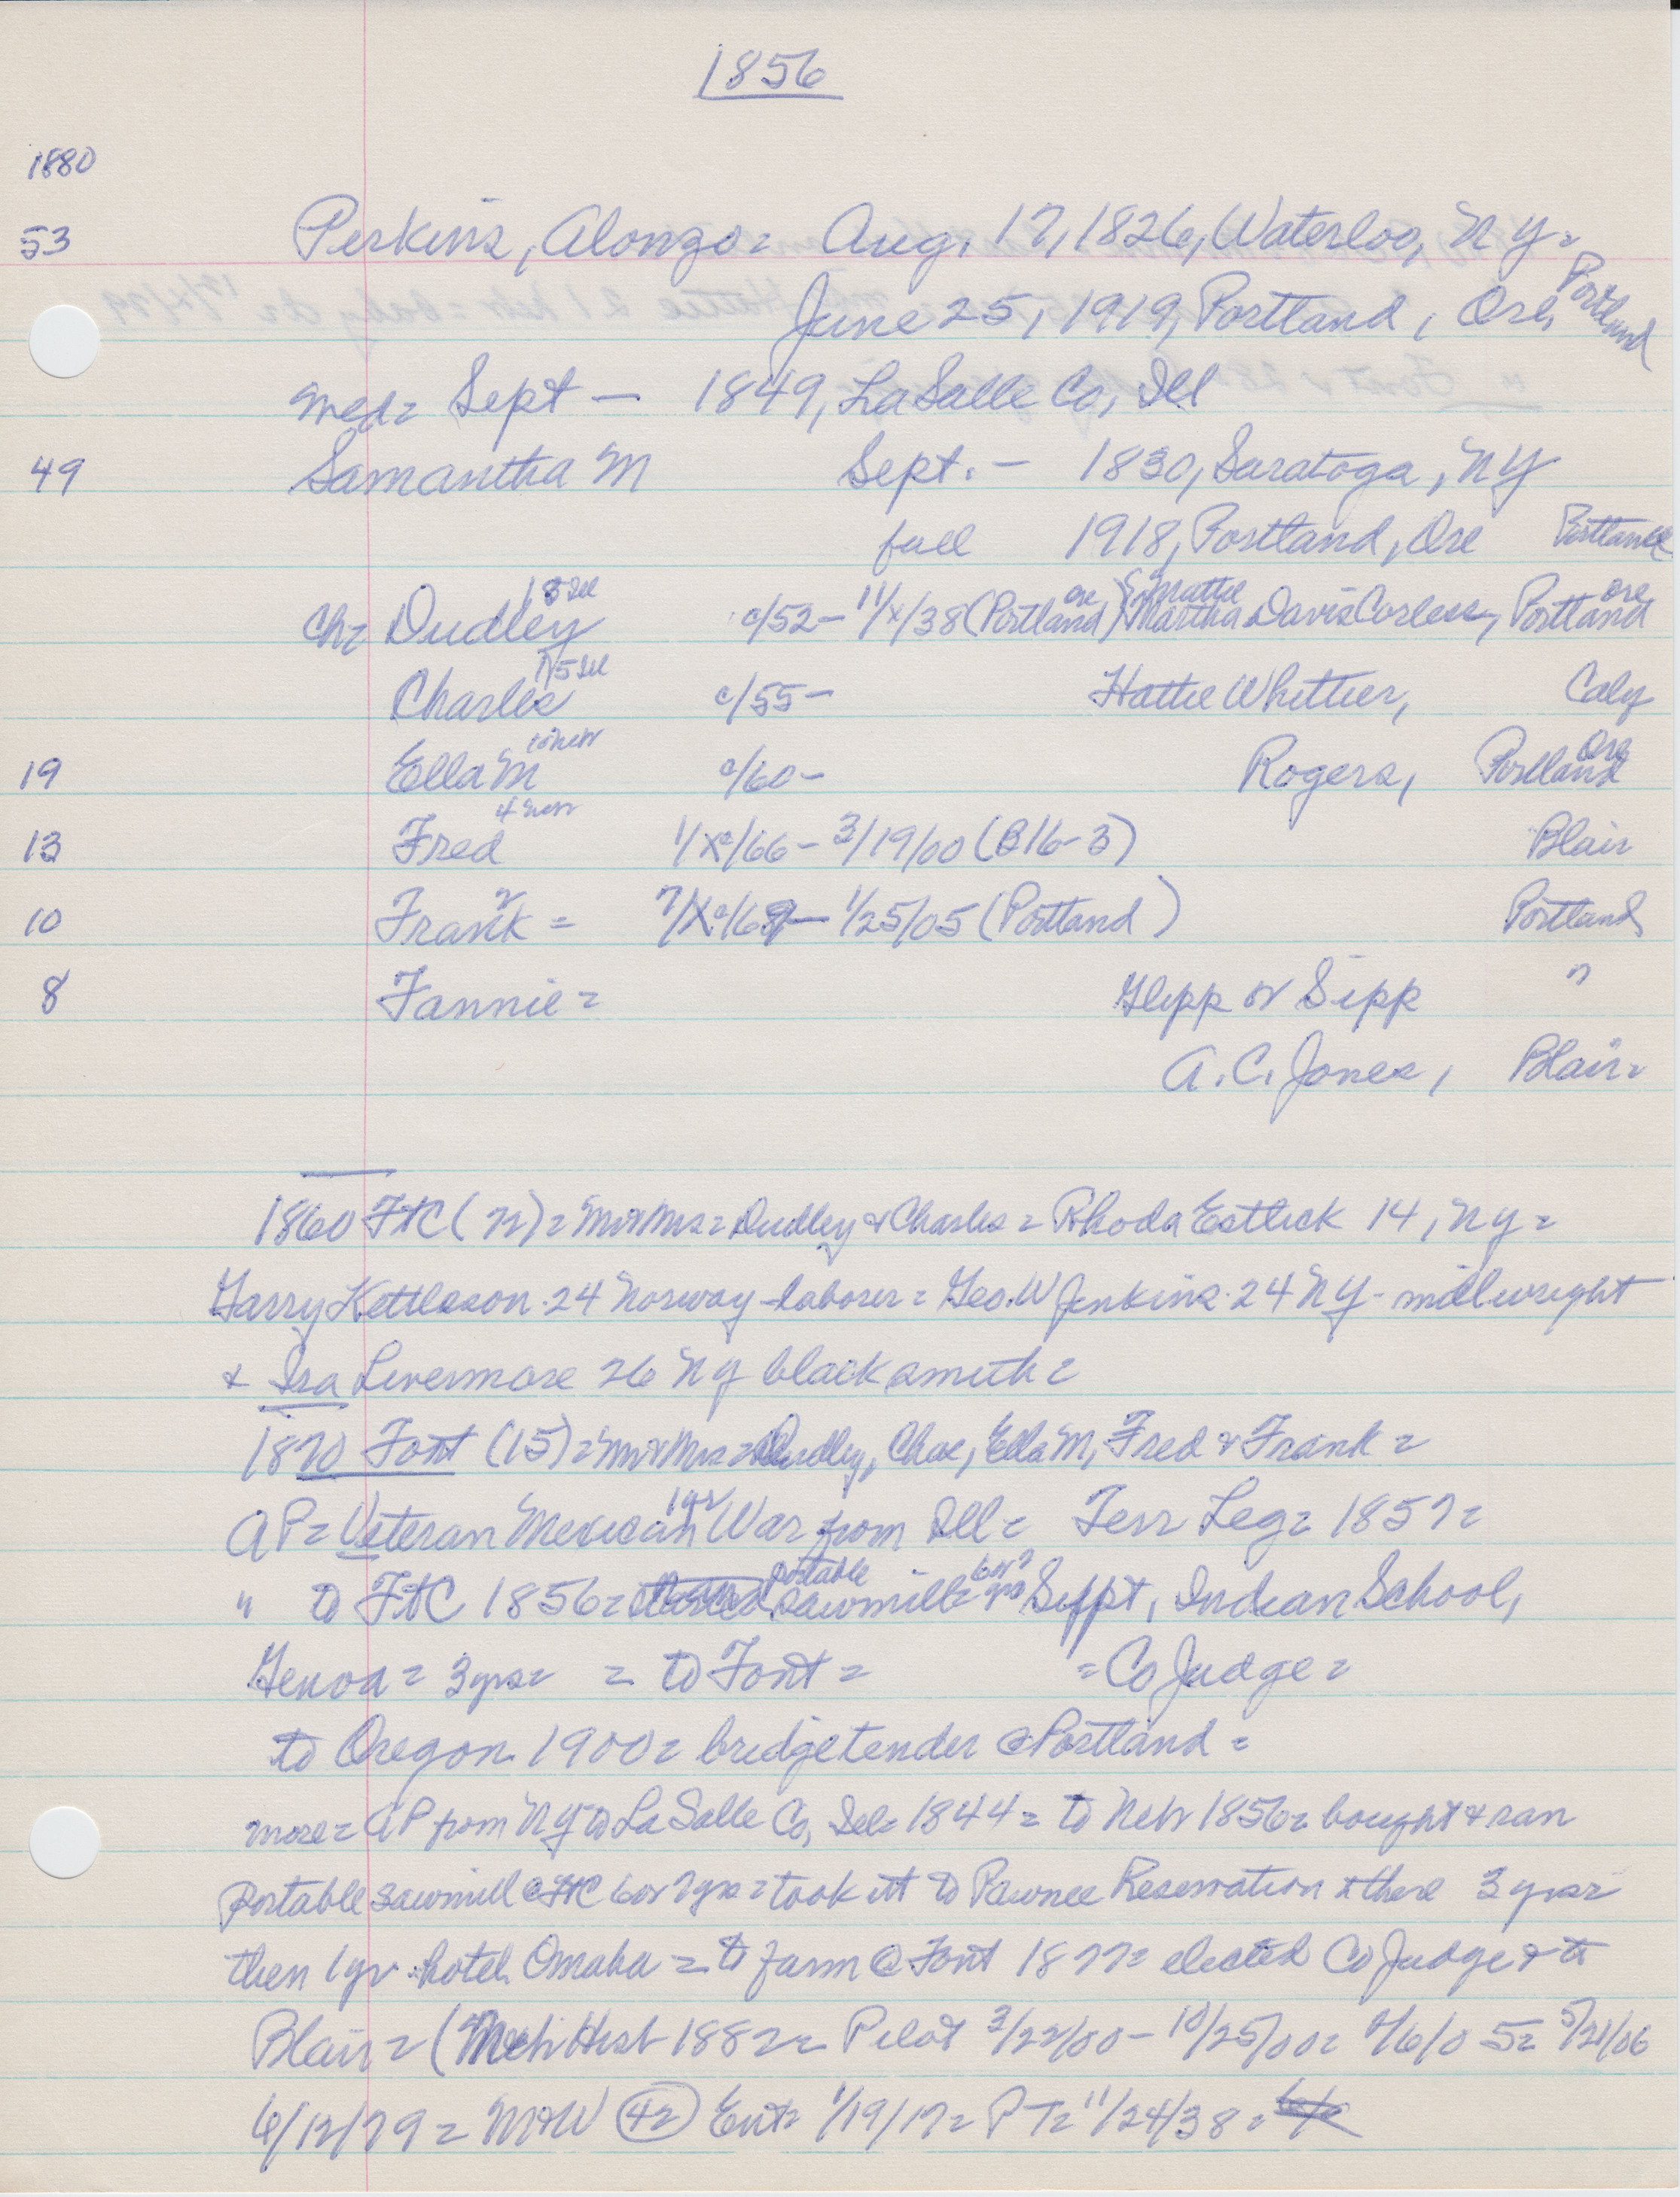 1856
1880
53 Perkins, Alonzo = Aug. 17, 1826, Waterloo, NY =
June 25, 1919, Portland, Ore, Portland
med = Sept — 1849, LaSalle Co, Ill
49 Samantha M Sept. — 1830, Saratoga, NY
fall 1918, Portland, Ore Portland
18 Ill Mattie ore ore
Ch = Dudley c/52 — 11/x/38 (Portland) Martha Davis Corless, Portland
15 Ill
Charles c/55 — Hattie Whittier, Calif
10 Neb Ore
19 Ella M c/60 — Rogers, Portland
4 Neb
13 Fred 1/x c/66 — 3/19/00 (B16-3) Blair
2
10 Frank = 7/x c/69 — 1/25/05 (Portland) Portland
8 Fannie = Glipp or Sipp "
A.C. Jones, Blair =
1860 FtC (72) = Mr & Mrs = Dudley & Charles = Rhoda Estlick 14, NY =
Garry Kettleson 24 Norway - laborer = Geo. W Jenkins 24 NY - millwright
& Ira Livermore 26 NY blacksmith =
1870 Font (15) = Mr & Mrs = Dudley, Chas, Ella M, Fred & Frank =
1 yr
AP = Veteran Mexican War from Ill = Terr Leg = 1857 =
portable 6 or 7
" to FtC 1856 = sawmill = yrs Suppt, Indian School,
Genoa = 3 yrs = = to Font = = Co Judge =
to Oregon 1900 = bridgetender @ Portland =
more = AP from NY to LaSalle Co, Ill = 1844 = to Neb 1856 = bought & ran
portable sawmill @ FtC 6 or 7 yrs = took it to Pawnee Reservation & there 3 yrs =
then 1 yr hotel Omaha = to farm @ Font 1877 = elected Co Judge & to
Blair = ( Hist 1882 = Pilot 3/22/00 — 10/25/00 = 4/6/05 = 5/21/06
6/12/79 = M&W (42) Ent = 1/19/17 = PT = 11/24/38 =